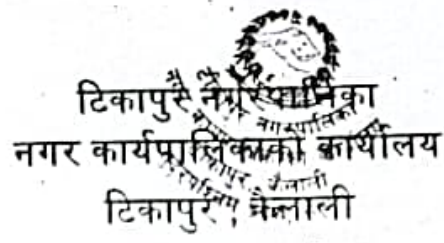 टिकापुर नगरपालिका
नगर कार्यपालिकाको कार्यालय
टिकापुर, कैलाली